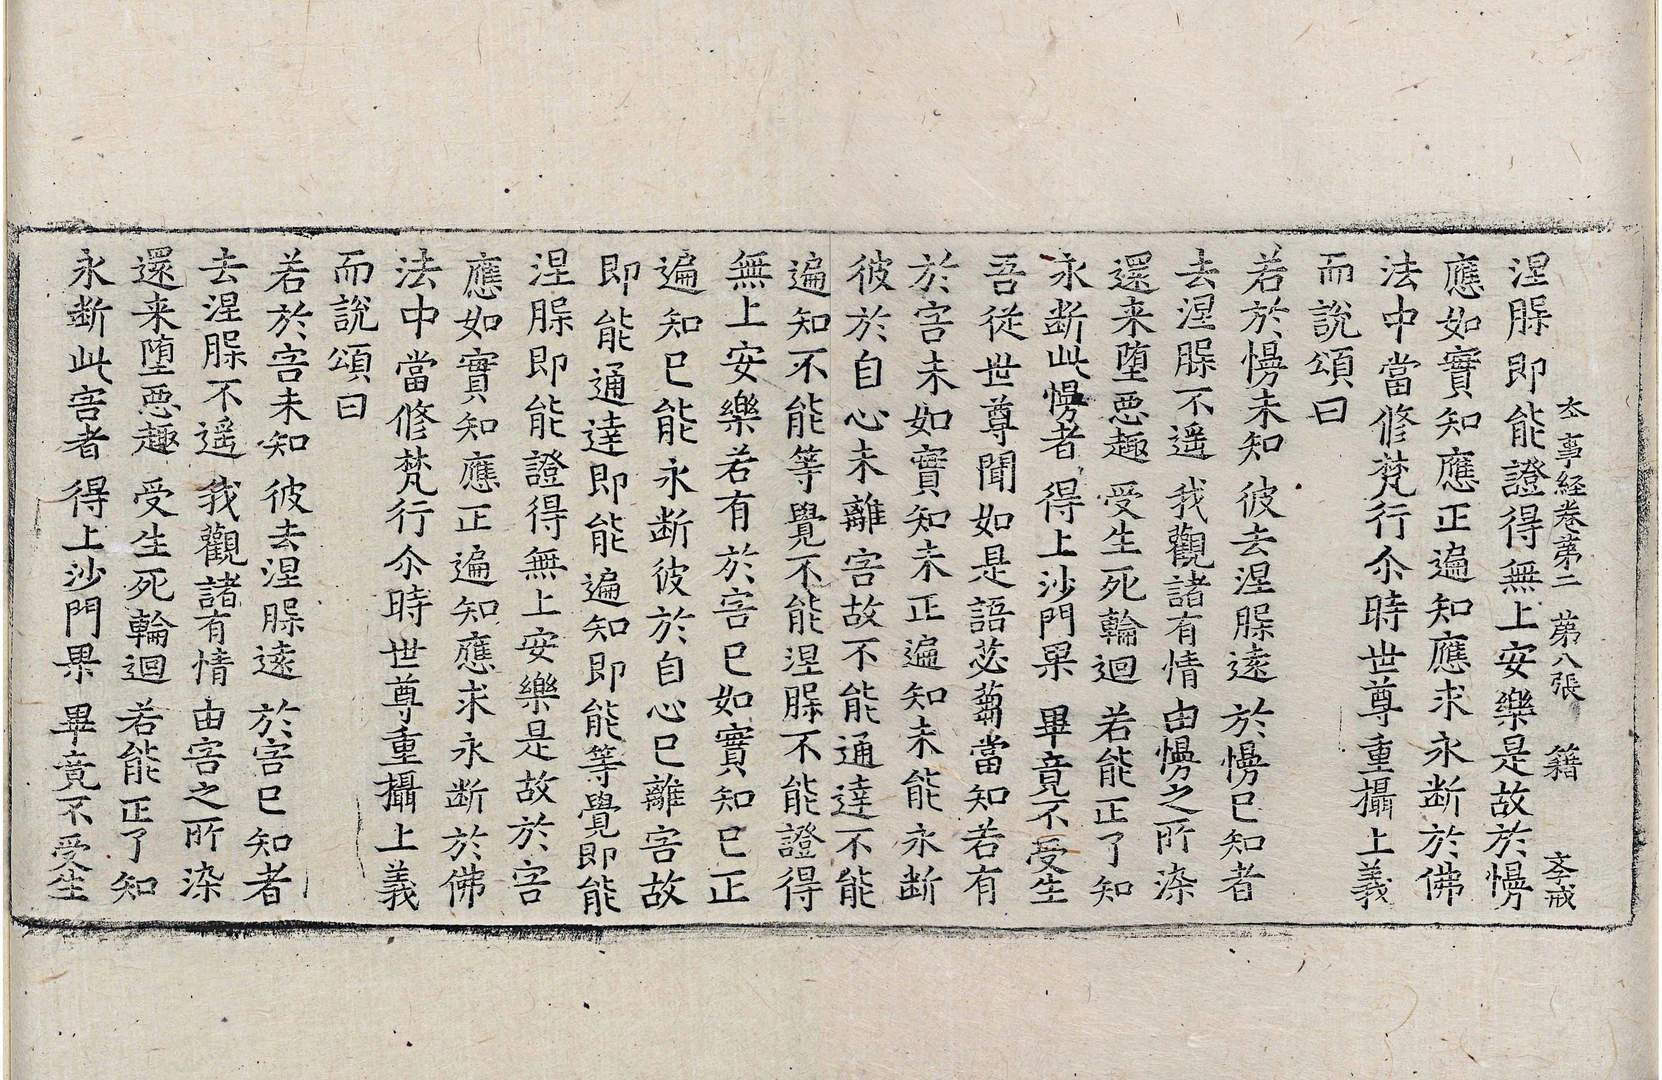 夲事経卷第二　第八張　籍　文戒
涅槃即能證得無上安樂是故於慢
應如實知應正遍知應求永断於佛
法中當修梵行尒時世尊重攝上義
而說頌曰
若於慢未知　彼去涅槃遠　於慢已知者
去涅槃不遥　我觀諸有情　由慢之所染
還来墮惡趣　受生死輪迴　若能正了知
永断此慢者　得上沙門果　畢竟不受生
吾從世尊聞如是語苾蒭當知若有
於害未如實知未正遍知未能永断
彼於自心未離害故不能通達不能
遍知不能等覺不能涅槃不能證得
無上安樂若有於害已如實知已正
遍知已能永断彼於自心已離害故
即能通達即能遍知即能等覺即能
涅槃即能證得無上安樂是故於害
應如實知應正遍知應求永断於佛
法中當修梵行尒時世尊重攝上義
而說頌曰
若於害未知　彼去涅槃遠　於害已知者
去涅槃不遥　我觀諸有情　由害之所染
還来墮惡趣　受生死輪迴　若能正了知
永断此害者　得上沙門果　畢竟不受生